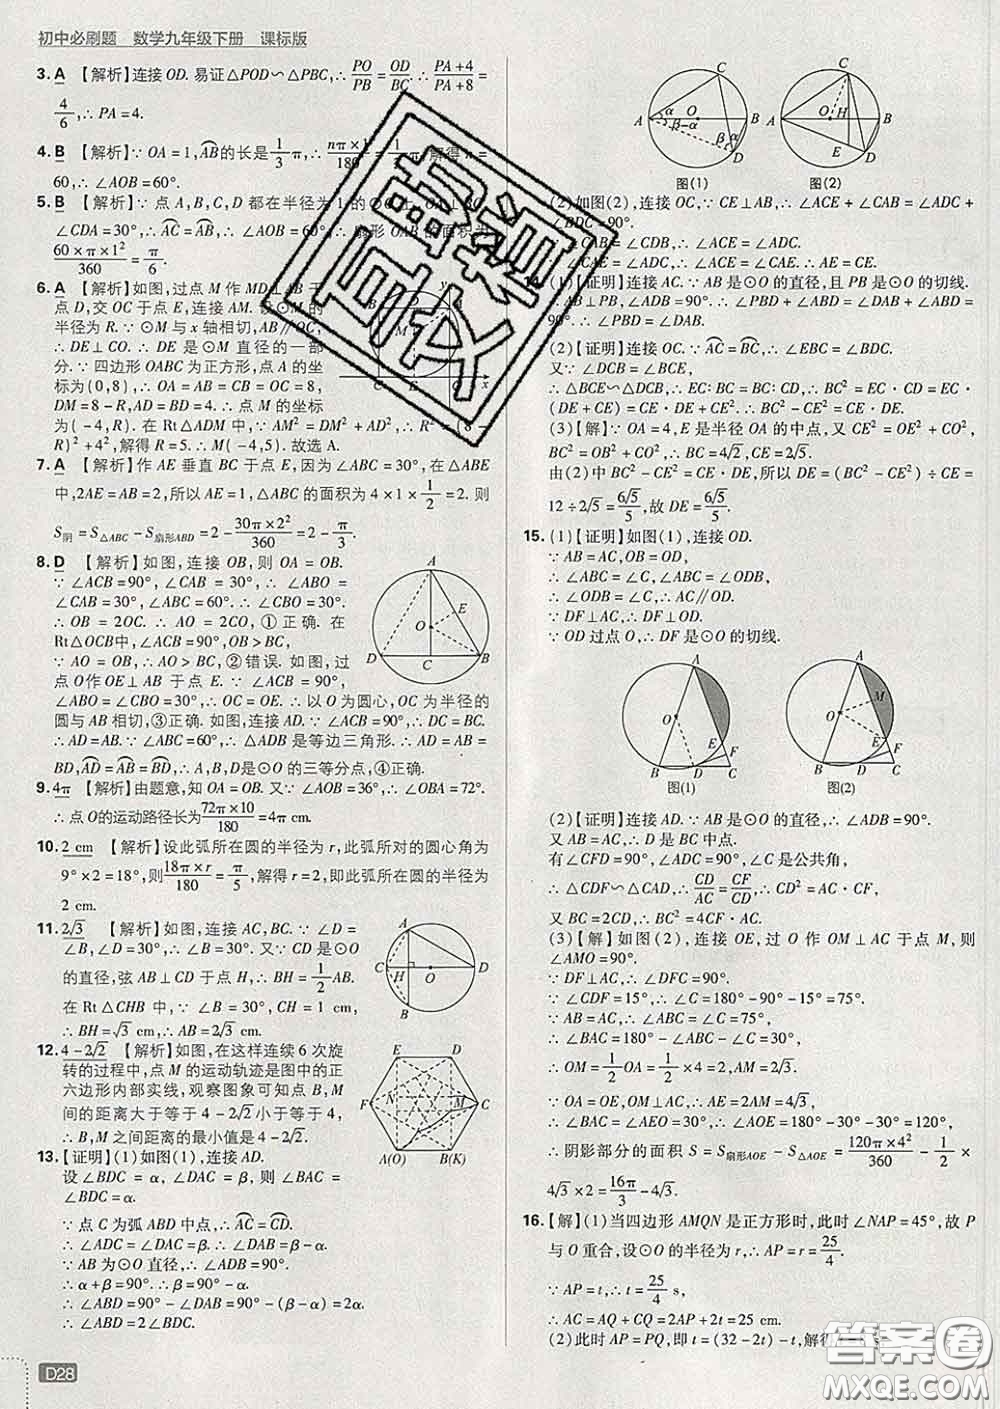 初中必刷题 数学九年级下册 课标版
3. A 【解析】连接 OD. 易证△POD∽△PBC,∴ PO/PB = OD/BC,∴ (PA+4)/(PA+8) =
4/6,∴ PA=4.
4. B 【解析】∵ OA=1, AB的长是 1/3 π,∴ nπ×1/180 = 1/3 π,解得 n=
60,∴ ∠AOB=60°.
5. B 【解析】∵ 点 A,B,C,D 都在半径为 1 的⊙O
∠CDA=30°,∴ AC=AB,∴ ∠AOB=60°,∴ 扇形 OAB 的面积为
60×π×1²/360 = π/6.
6. A 【解析】如图,过点 M 作 MD⊥AB 于
点 D,交 OC 于点 E,连接 AM. 设⊙M 的
半径为 R. ∵ ⊙M 与 x 轴相切,AB∥OC,
∴ DE⊥CO. ∴ DE 是⊙M 直径的一部
分. ∵ 四边形 OABC 为正方形,点 A 的坐
标为(0,8),∴ OA=AB=CB=OC=8,
DM=8-R,AD=BD=4,∴ 点 M 的坐标为
(-4,R). 在 Rt△ADM 中,∵ AM²=DM²+AD²,∴ R²=(8-
R)²+4²,解得 R=5. ∴ M(-4,5). 故选 A.
7. A 【解析】作 AE 垂直 BC 于点 E,因为∠ABC=30°,在△ABE
中,2AE=AB=2,所以 AE=1,△ABC 的面积为 4×1×1/2=2. 则
S阴=S△ABC-S扇形ABD=2-30π×2²/360=2-π/3.
8. D 【解析】如图,连接 OB,则 OA=OB.
∵ ∠ACB=90°,∠CAB=30°,∴ ∠ABO=
∠CAB=30°,∠ABC=60°. ∴ ∠CBO=30°.
∴ OB=2OC. ∴ AO=2CO,①正确. 在
Rt△OCB中,∠ACB=90°,OB>BC,
∵ AO=OB,∴ AO>BC,②错误. 如图,过
点 O作 OE⊥AB 于点 E. ∵ ∠ACB=90°,
∠ABO=∠CBO=30°,∴ OC=OE. ∴ 以 O 为圆心,OC 为半径的
圆与 AB 相切,③正确. 如图,连接 AD. ∵ ∠ACB=90°,∴ DC=BC.
∴ AD=AB. ∵ ∠ABC=60°,∴ △ADB 是等边三角形. ∴ AD=AB=
BD,AD=AB=BD,∴ A,B,D是⊙O 的三等分点,④正确.
9. 4π 【解析】由题意,知 OA=OB. 又∵ ∠AOB=36°,∴ ∠OBA=72°.
∴ 点 O的运动路径长为 72π×10/180=4π cm.
10. 2 cm 【解析】设此弧所在圆的半径为 r,此弧所对的圆心角为
9°×2=18°,则 18π×r/180=π/5,解得 r=2,即此弧所在圆的半径为
2 cm.
11. 2√3 【解析】如图,连接 AC,BC. ∵ ∠D=
∠B,∴ ∠B=30°. 又∵ CD 是⊙O
的直径,弦 AB⊥CD 于点 H,∴ BH=1/2AB.
在 Rt△CHB 中,∵ ∠B=30°,CH=1 cm,
∴ BH=√3 cm,∴ AB=2√3 cm.
12. 4-2√2 【解析】如图,在这样连续 6 次旋
转的过程中,点 M 的运动轨迹是图中的正
六边形内部实线,观察图象可知点 B,M
间的距离大于等于 4-2√2小于等于 4,
∴ B,M 之间距离的最小值是 4-2√2.
13. 【证明】(1)如图(1),连接 AD.
设 ∠BDC=α,∠DAC=β,则 ∠BAC=
∠BDC=α,
∵ 点 C 为弧 ABD 中点,∴ AC=CD.
∴ ∠ADC=∠DAC=β. ∴ ∠DAB=β-α.
∵ AB 为⊙O 直径,∴ ∠ADB=90°.
∴ α+β=90°. ∴ β=90°-α.
∴ ∠ABD=90°-∠DAB=90°-(β-α)=2α.
∴ ∠ABD=2∠BDC.
D28
图(1) 图(2)
(2)如图(2),连接 OC,∵ CE⊥AB,∴ ∠ACE+∠CAB=∠ADC+
∠BDC=90°,
∠CAB=∠CDB,∴ ∠ACE=∠ADC.
∠CAE=∠ADC,∴ ∠ACE=∠CAE. ∴ AE=CE.
(1)【证明】连接 AC. ∵ AB 是⊙O 的直径,且 PB 是⊙O 的切线,
AB⊥PB,∠ADB=90°. ∴ ∠PBD+∠ABD=∠DAB+∠ABD=
90°. ∴ ∠PBD=∠DAB.
(2)【证明】连接 OC. ∵ BC=BC,∴ ∠EBC=∠BDC.
又∵ ∠DCB=∠BCE,
∴ △BCE∽△DCB,∴ EC∶BC=BC∶CD,∴ BC²=EC×CD=
(DE+CE)=CE·DE+CE²,∴ BC²-CE²=CE·DE.
(3)【解】∵ OA=4,E 是半径 OA 的中点,又∵ CE²=OE²+CO²,
BC²=OB²+CO²,∴ BC=4√2,CE=2√5.
由(2)中 BC²-CE²=CE·DE,所以 DE=(BC²-CE²)÷CE=
12÷2√5=6√5/5,故 DE=6√5/5.
15. (1)【证明】如图(1),连接 OD.
∵ AB=AC,OB=OD,
∴ ∠ABC=∠C,∠ABC=∠ODB,
∴ ∠ODB=∠C,∴ AC∥OD.
∵ DF⊥AC,∴ DF⊥OD.
∵ OD 过点 O,∴ DF 是⊙O 的切线.
图(1) 图(2)
(2)【证明】连接 AD. ∵ AB 是⊙O 的直径,∴ ∠ADB=90°.
又 AB=AC,∴ D 是 BC 中点.
有∠CFD=90°,∠FCD=∠ACD,∠C 是公共角,
∴ △CDF∽△CAD,∴ CD/AC=CF/CD,∴ CD²=AC·CF.
又∵ BC=2CD,∴ BC²=4CD²=4CF·AC.
(3)【解】如图(2),连接 OE,过 O 作 OM⊥AC 于点 M,则
∠AMO=90°.
∵ DF⊥AC,∴ ∠DFC=90°.
∵ ∠CDF=15°,∴ ∠C=180°-90°-15°=75°.
∵ AB=AC,∴ ∠ABC=∠C=75°.
∴ ∠BAC=180°-∠ABC-∠C=30°,
∴ OM=1/2OA=1/2×4=2,AM=2√3.
∵ OA=OE,OM⊥AC,∴ AE=2AM=4√3.
∴ ∠BAC=∠AEO=30°,∴ ∠AOE=180°-30°-30°=120°,
∴ 阴影部分的面积 S=S扇形AOE-S△AOE=120π×4²/360-1/2×
4√3×2=16π/3-4√3.
16. 【解】(1)当四边形 AMQN 是正方形时,此时∠NAP=45°,故 P
与 O 重合,设⊙O 的半径为 r,∴ AP=r=25/4.
∵ AP=t,∴ t=25/4 s.
∴ AC=AQ+CQ=2AP+2t=25 cm.
(2)此时 AP=PQ,即 t=(32-2t)-t,解得
答案圈
MXQE.COM